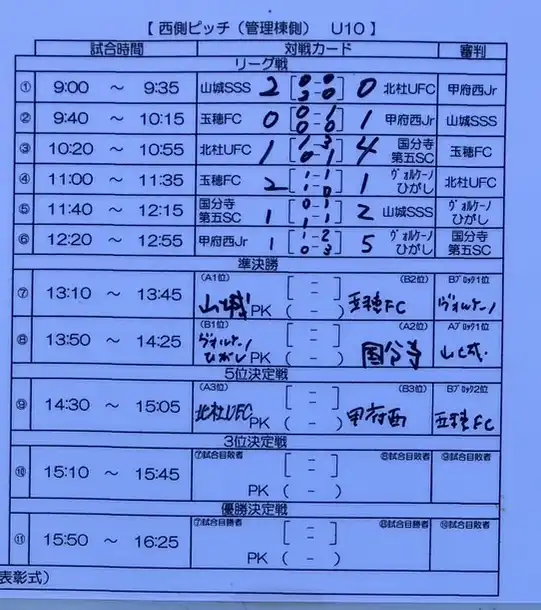 【 西側ピッチ（管理棟側） U10 】
試合時間 対戦カード 審判
リーグ戦
① 9:00 ～ 9:35 山城SSS 2 [ 0 - 0 ] 0 北杜UFC 甲府西Jr
3 - 0
② 9:40 ～ 10:15 玉穂FC 0 [ 0 - 1 ] 1 甲府西Jr 山城SSS
0 - 0
③ 10:20 ～ 10:55 北杜UFC 1 [ 1 - 3 ] 4 国分寺第五SC 玉穂FC
0 - 1
④ 11:00 ～ 11:35 玉穂FC 2 [ 1 - 1 ] 1 ヴォルケーノひがし 北杜UFC
1 - 0
⑤ 11:40 ～ 12:15 国分寺第五SC 1 [ 0 - 1 ] 2 山城SSS ヴォルケーノひがし
1 - 1
⑥ 12:20 ～ 12:55 甲府西Jr 1 [ 1 - 2 ] 5 ヴォルケーノひがし 国分寺第五SC
0 - 3
準決勝
(A1位) (B2位) Bブロック1位
⑦ 13:10 ～ 13:45 山城 [ - ] 玉穂FC ヴォルケーノ
PK ( - )
(B1位) (A2位) Aブロック1位
⑧ 13:50 ～ 14:25 ヴォルケーノひがし [ - ] 国分寺 山城
PK ( - )
5位決定戦
(A3位) (B3位) Bブロック2位
⑨ 14:30 ～ 15:05 北杜UFC [ - ] 甲府西 玉穂FC
PK ( - )
3位決定戦
⑦試合目敗者 ⑧試合目敗者 ⑨試合目敗者
⑩ 15:10 ～ 15:45 [ - ]
PK ( - )
優勝決定戦
⑦試合目勝者 ⑧試合目勝者 ⑩試合目敗者
⑪ 15:50 ～ 16:25 [ - ]
PK ( - )
表彰式）